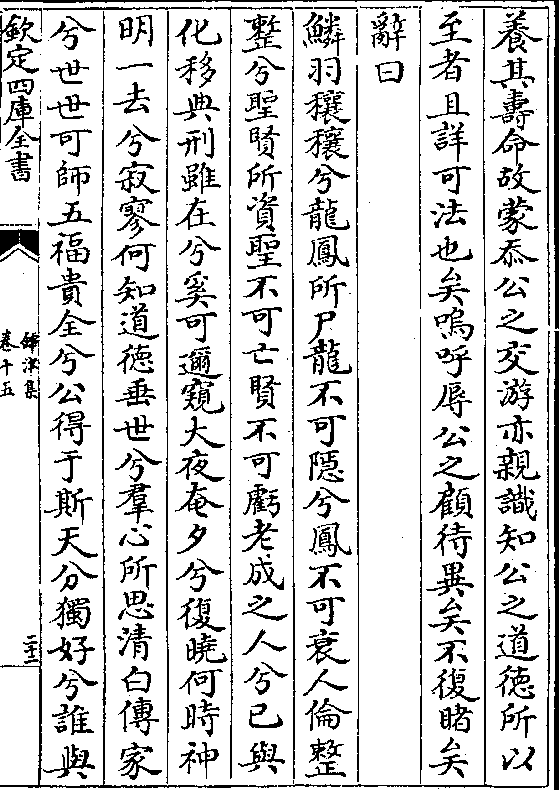 養其壽命故蒙忝公之交游亦親識知公之道德所以
至者且詳可法也矣嗚呼辱公之顧待異矣不復睹矣
辭曰
鱗羽穰穰兮龍鳳所尸龍不可隱兮鳳不可衰人倫整
整兮聖賢所資聖不可亡賢不可虧老成之人兮已與
化移典刑雖在兮奚可邇窺大夜奄夕兮復曉何時神
明一去兮寂寥何知道德垂世兮羣心所思清白傳家
兮世世可師五福貴全兮公得于斯天分獨好兮誰與
欽定四庫全書
鐔津集
卷十五
二十二